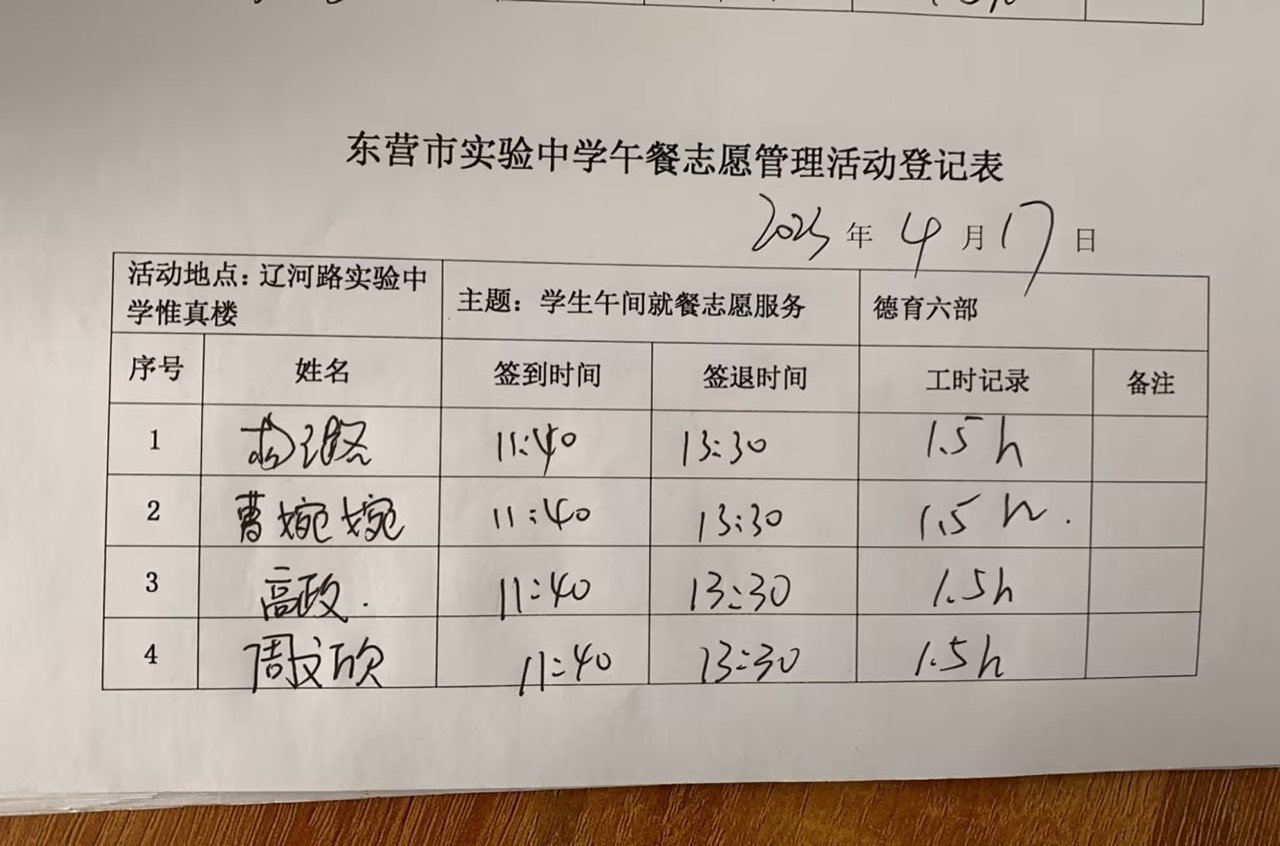 东营市实验中学午餐志愿管理活动登记表
2025 年 4 月 17 日
活动地点：辽河路实验中学惟真楼 主题：学生午间就餐志愿服务 德育六部
序号 姓名 签到时间 签退时间 工时记录 备注
1 11:40 13:30 1.5h
2 曹婉婉 11:40 13:30 1.5h.
3 高政. 11:40 13:30 1.5h
4 周文欣 11:40 13:30 1.5h